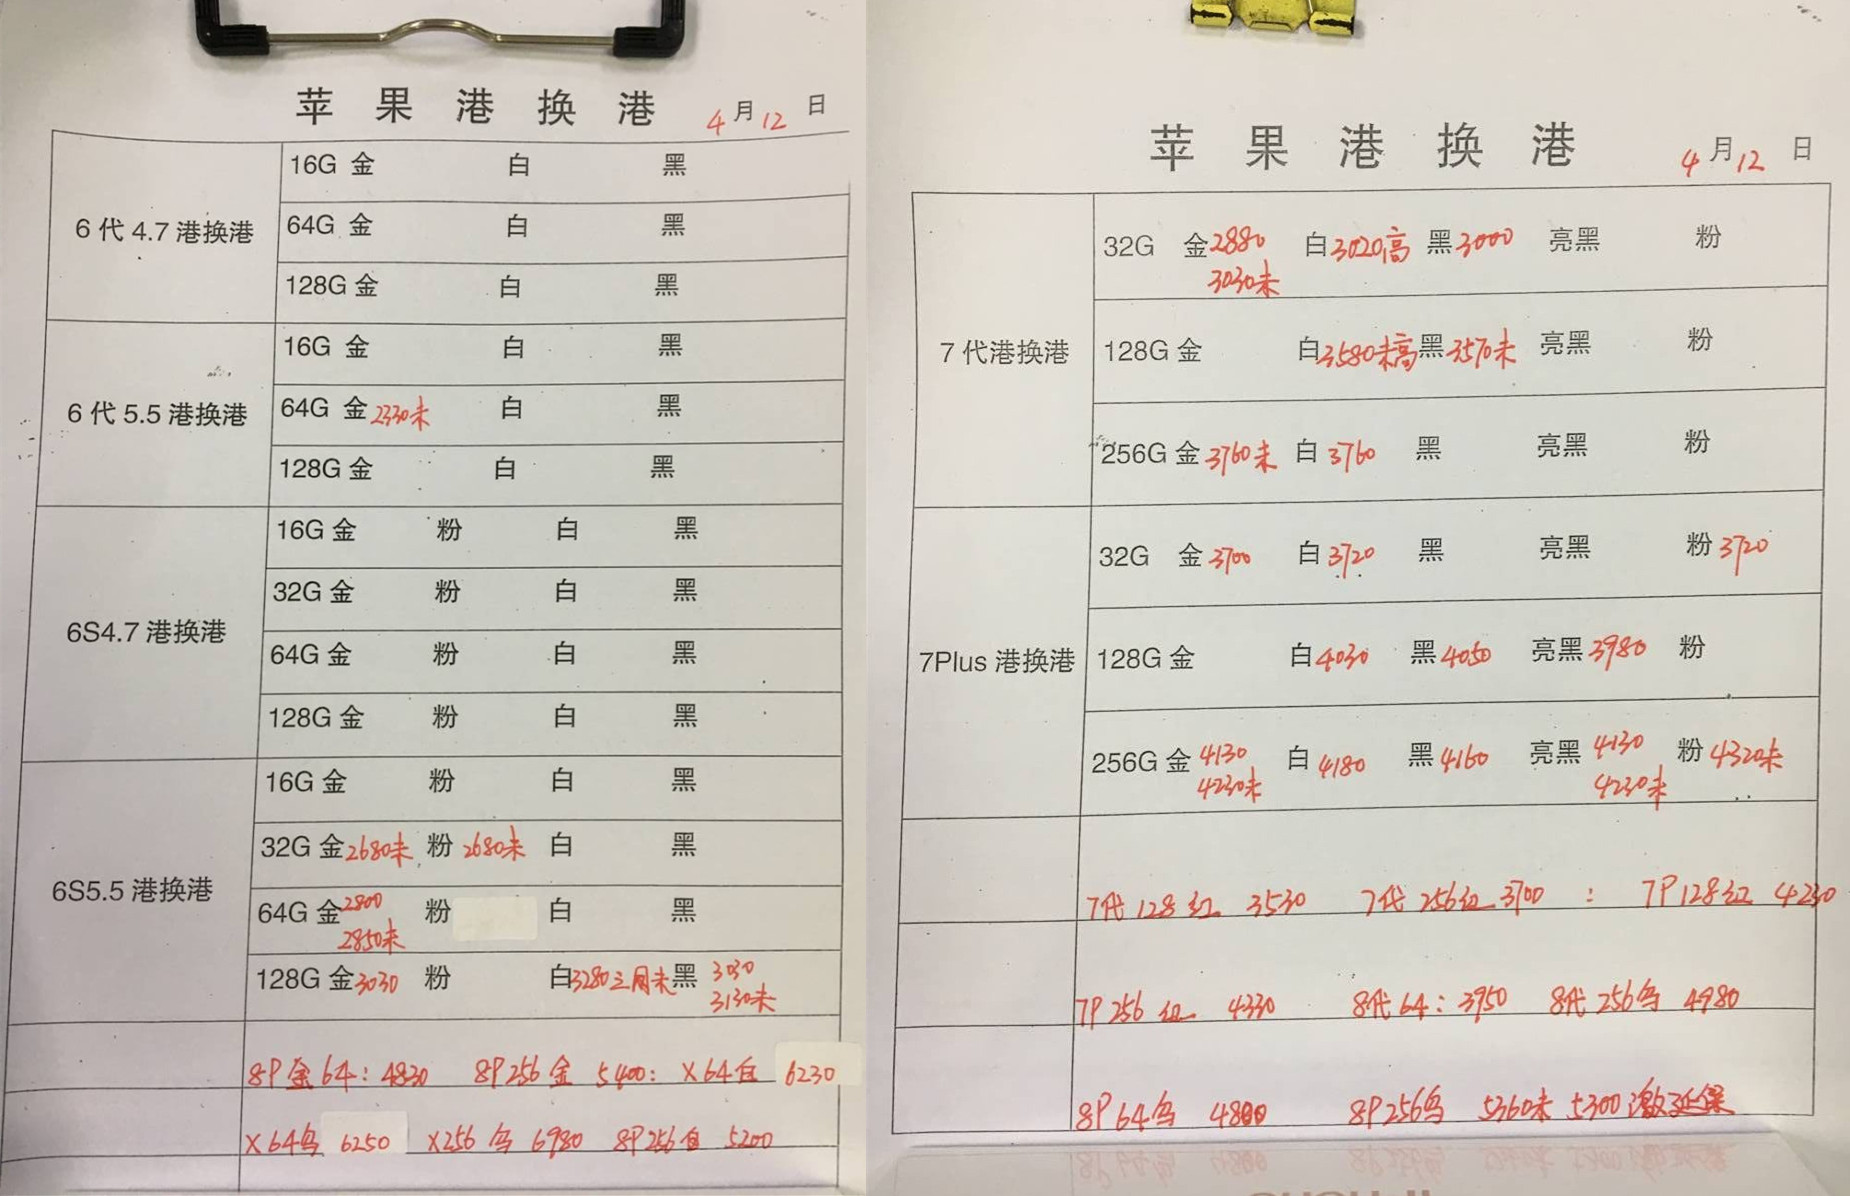 苹果港换港 4月12日
6代4.7港换港
16G 金 白 黑
64G 金 白 黑
128G 金 白 黑
6代5.5港换港
16G 金 白 黑
64G 金2330未 白 黑
128G 金 白 黑
6S4.7港换港
16G 金 粉 白 黑
32G 金 粉 白 黑
64G 金 粉 白 黑
128G 金 粉 白 黑
6S5.5港换港
16G 金 粉 白 黑
32G 金2680未 粉2680未 白 黑
64G 金2800 粉 白 黑
2850未
128G 金3030 粉 白3280三网未 黑3030
3130未
8P金64：4830 8P256金 5400： X64白 6230
X64乌 6250 X256乌 6980 8P256白 5200
苹果港换港 4月12日
7代港换港
32G 金2880 白3020高 黑3000 亮黑 粉
3030未
128G 金 白3580未高 黑3570未 亮黑 粉
256G 金3760未 白3760 黑 亮黑 粉
7Plus港换港
32G 金3700 白3720 黑 亮黑 粉3720
128G 金 白4030 黑4050 亮黑3980 粉
256G 金4130 白4180 黑4160 亮黑4130 粉4320未
4230未 4230未
7代128红 3530 7代256红3700 ： 7P128红 4230
7P256红 4330 8代64：3950 8代256乌 4980
8P64乌 4800 8P256乌 5360未 5300激延保